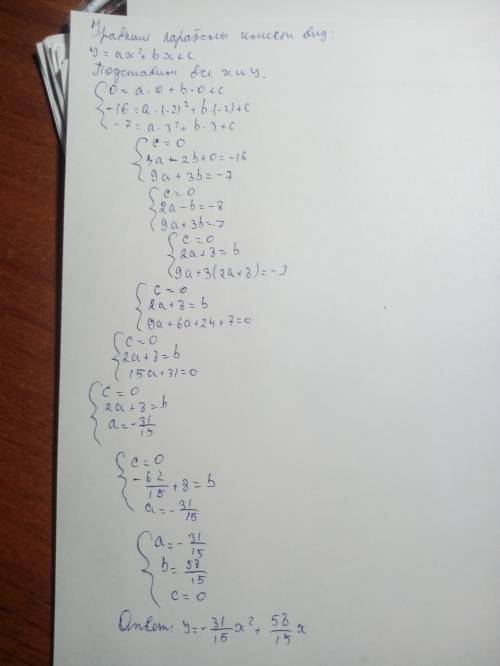 Уравнение параболы имеет вид:
y = ax² + bx + c
Подставим все x и y.
0 = a·0 + b·0 + c
-16 = a·(-2)² + b·(-2) + c
-7 = a·3² + b·3 + c
c = 0
4a - 2b + 0 = -16
9a + 3b = -7
c = 0
2a - b = -8
9a + 3b = -7
c = 0
2a + 8 = b
9a + 3(2a + 8) = -7
c = 0
2a + 8 = b
9a + 6a + 24 + 7 = 0
c = 0
2a + 8 = b
15a + 31 = 0
c = 0
2a + 8 = b
a = -31/15
c = 0
-62/15 + 8 = b
a = -31/15
a = -31/15
b = 58/15
c = 0
Ответ: y = -31/15 x² + 58/15 x